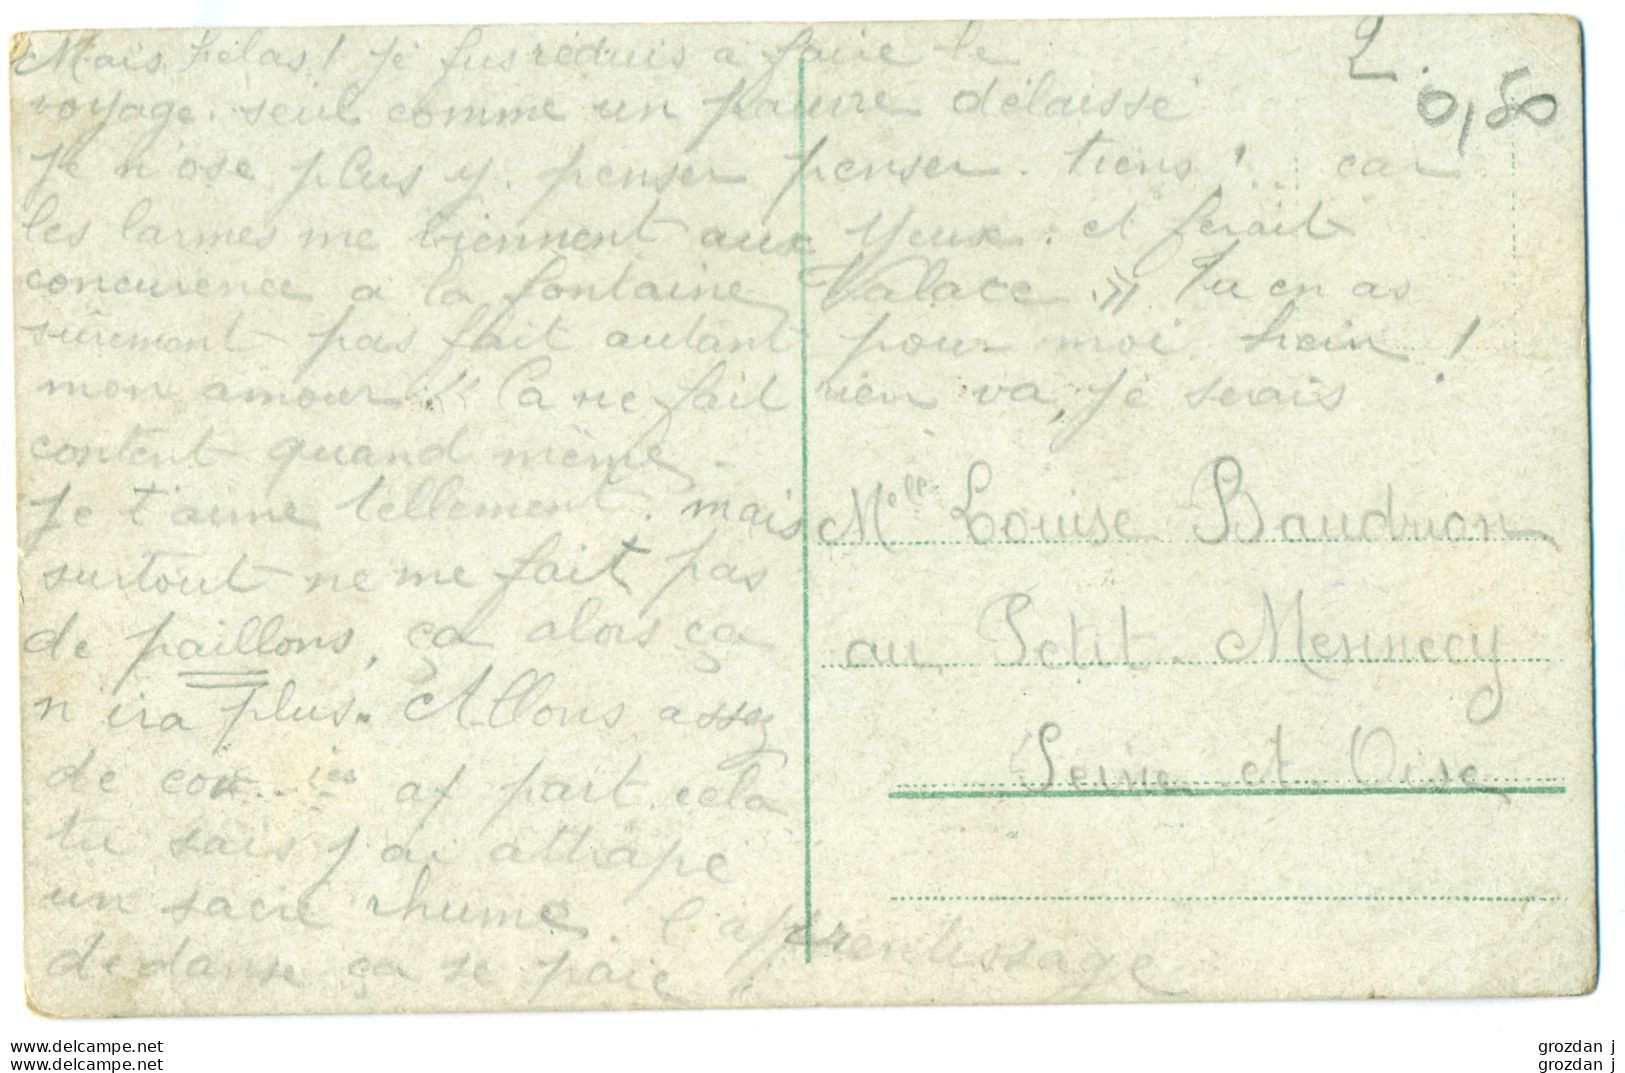 2.
0,50
Mais hélas ! Je fus réduis a faire le
voyage. seul comme un pauvre délaissé
Je n'ose plus y. penser penser. tiens !.. car
les larmes me viennent aux yeux. et ferait
concurence a la fontaine Valace » Tu en as
sûrement pas fait autant pour moi hein !
mon amour. " Ca ne fait rien va, Je serais
content quand même
Je t'aime tellement. mais
surtout ne me fait pas
de paillons, ça alors ça
n'ira plus. Allons assez
de af part. cela
tu sais j'ai attrapé
un sacré rhume l'apprentissage
de danse ça se paie !
Melle Louise Baudrion
au Petit-Mennecy
Seine-et-Oise
www.delcampe.net
www.delcampe.net
grozdan j
grozdan j